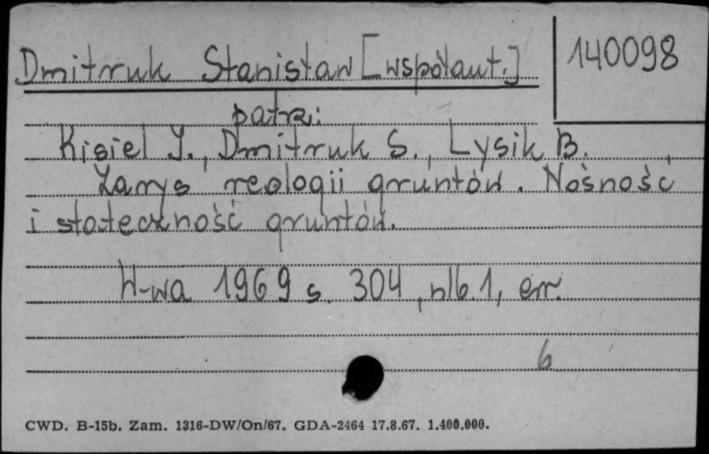 Dmitruk Stanisław [współaut.]
140098
patrz:
Kisiel I., Dmitruk S., Lysik B.
Zarys reologii gruntów. Nośność
i stateczność gruntów.
W-wa 1969 s. 304, nlb. 1, err.
6
CWD. B-15b. Zam. 1316-DW/On/67. GDA-2464 17.8.67. 1.400.000.